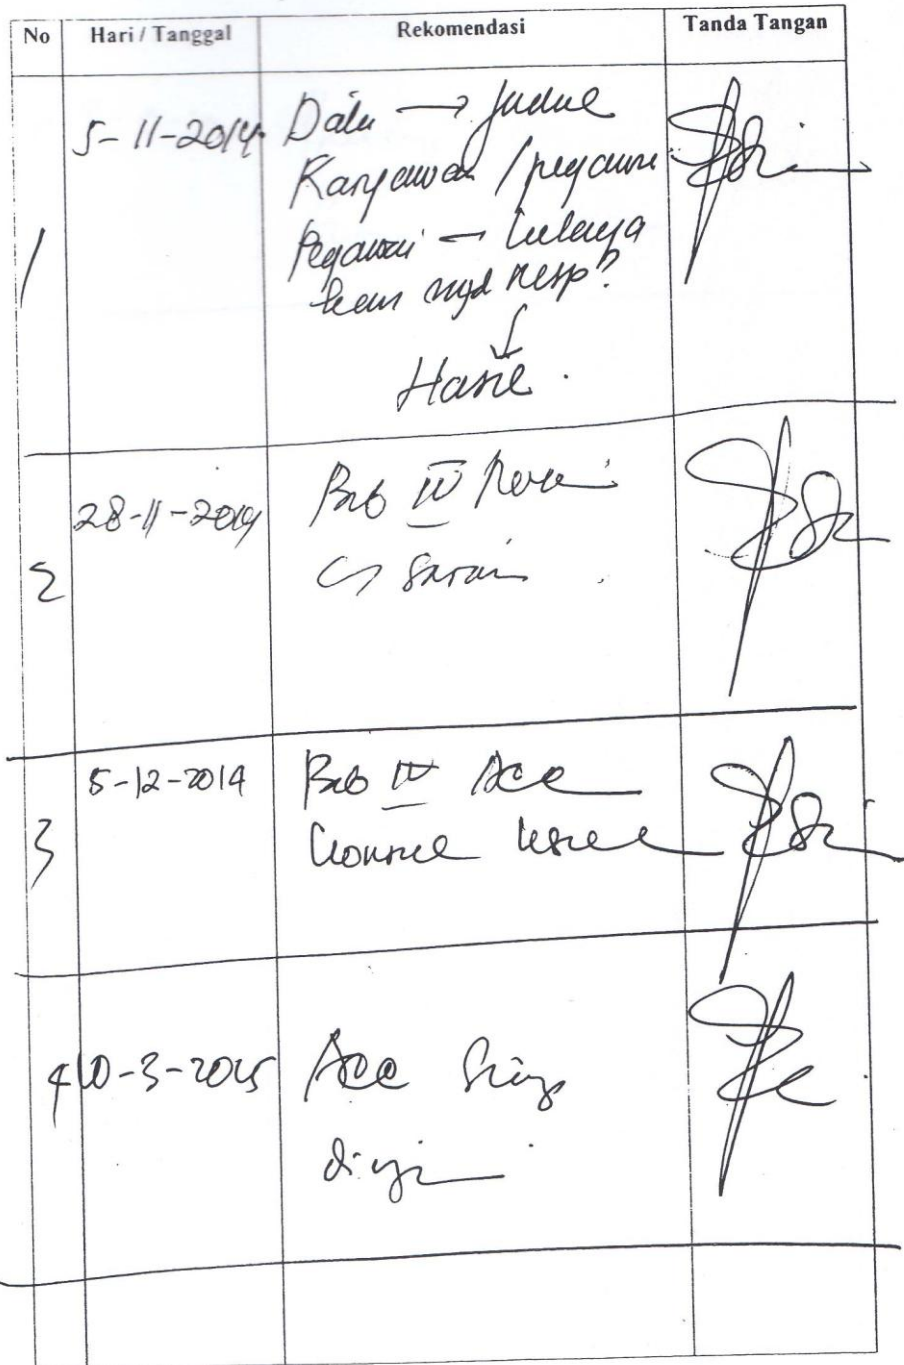 No Hari / Tanggal Rekomendasi Tanda Tangan
1 5-11-2014 → Judul
Karyawan / pegawai
Pegawai →
resp?
↓
Hasil.
2 28-11-2014 Bab IV Revisi
saran
3 5-12-2014 Bab IV Acc
4 10-3-2015 Acc Siap
diuji